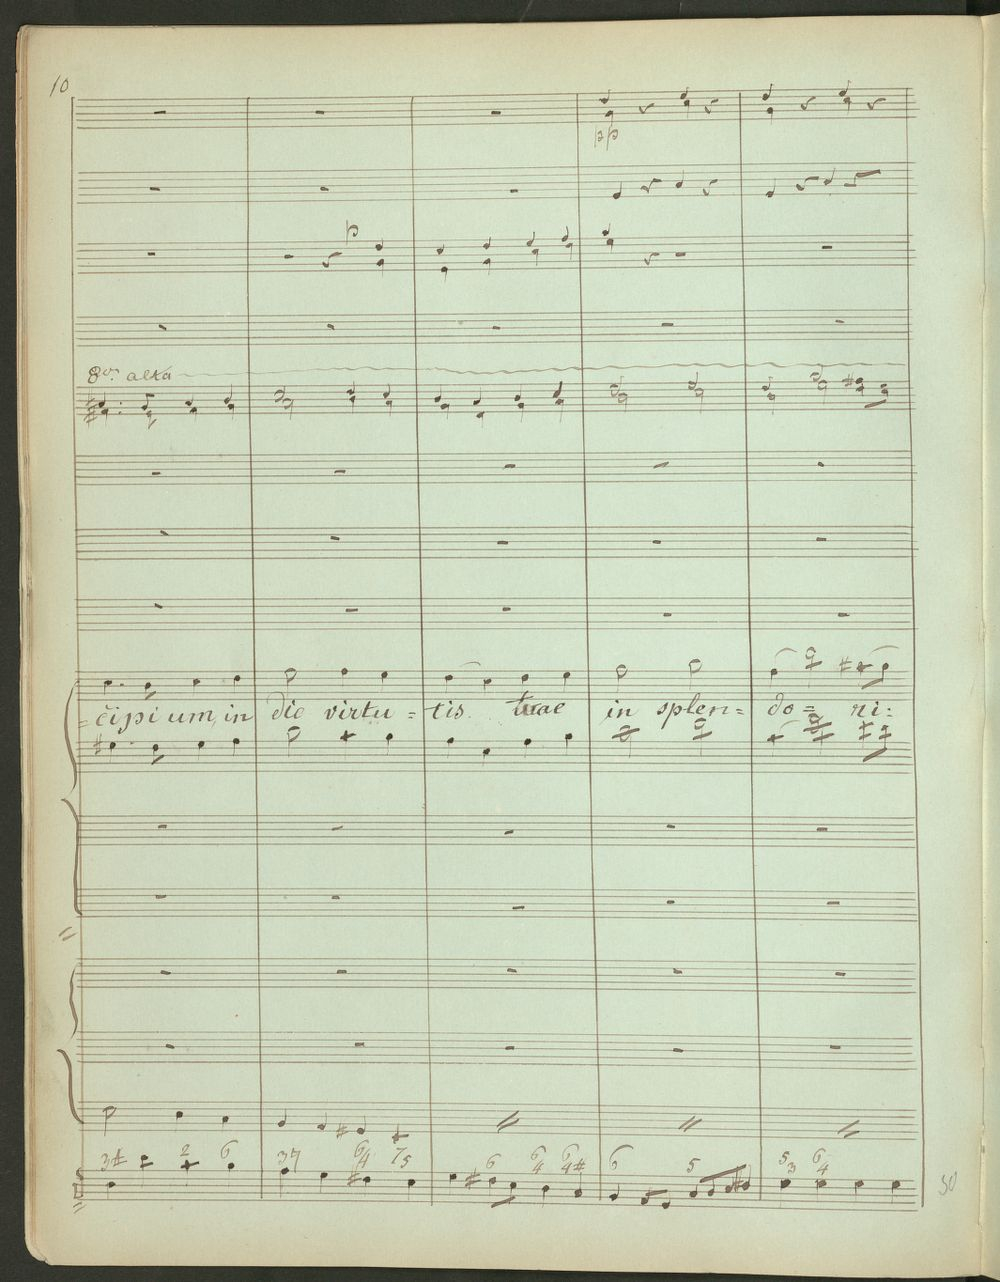 10
pp
p
8va alta
= cipi um, in die virtu = tis. tuae in splen = do = ri:
3# 2 6 37 6 4 75 6 6 4 6 4# 6 5 5 3 6 4
50